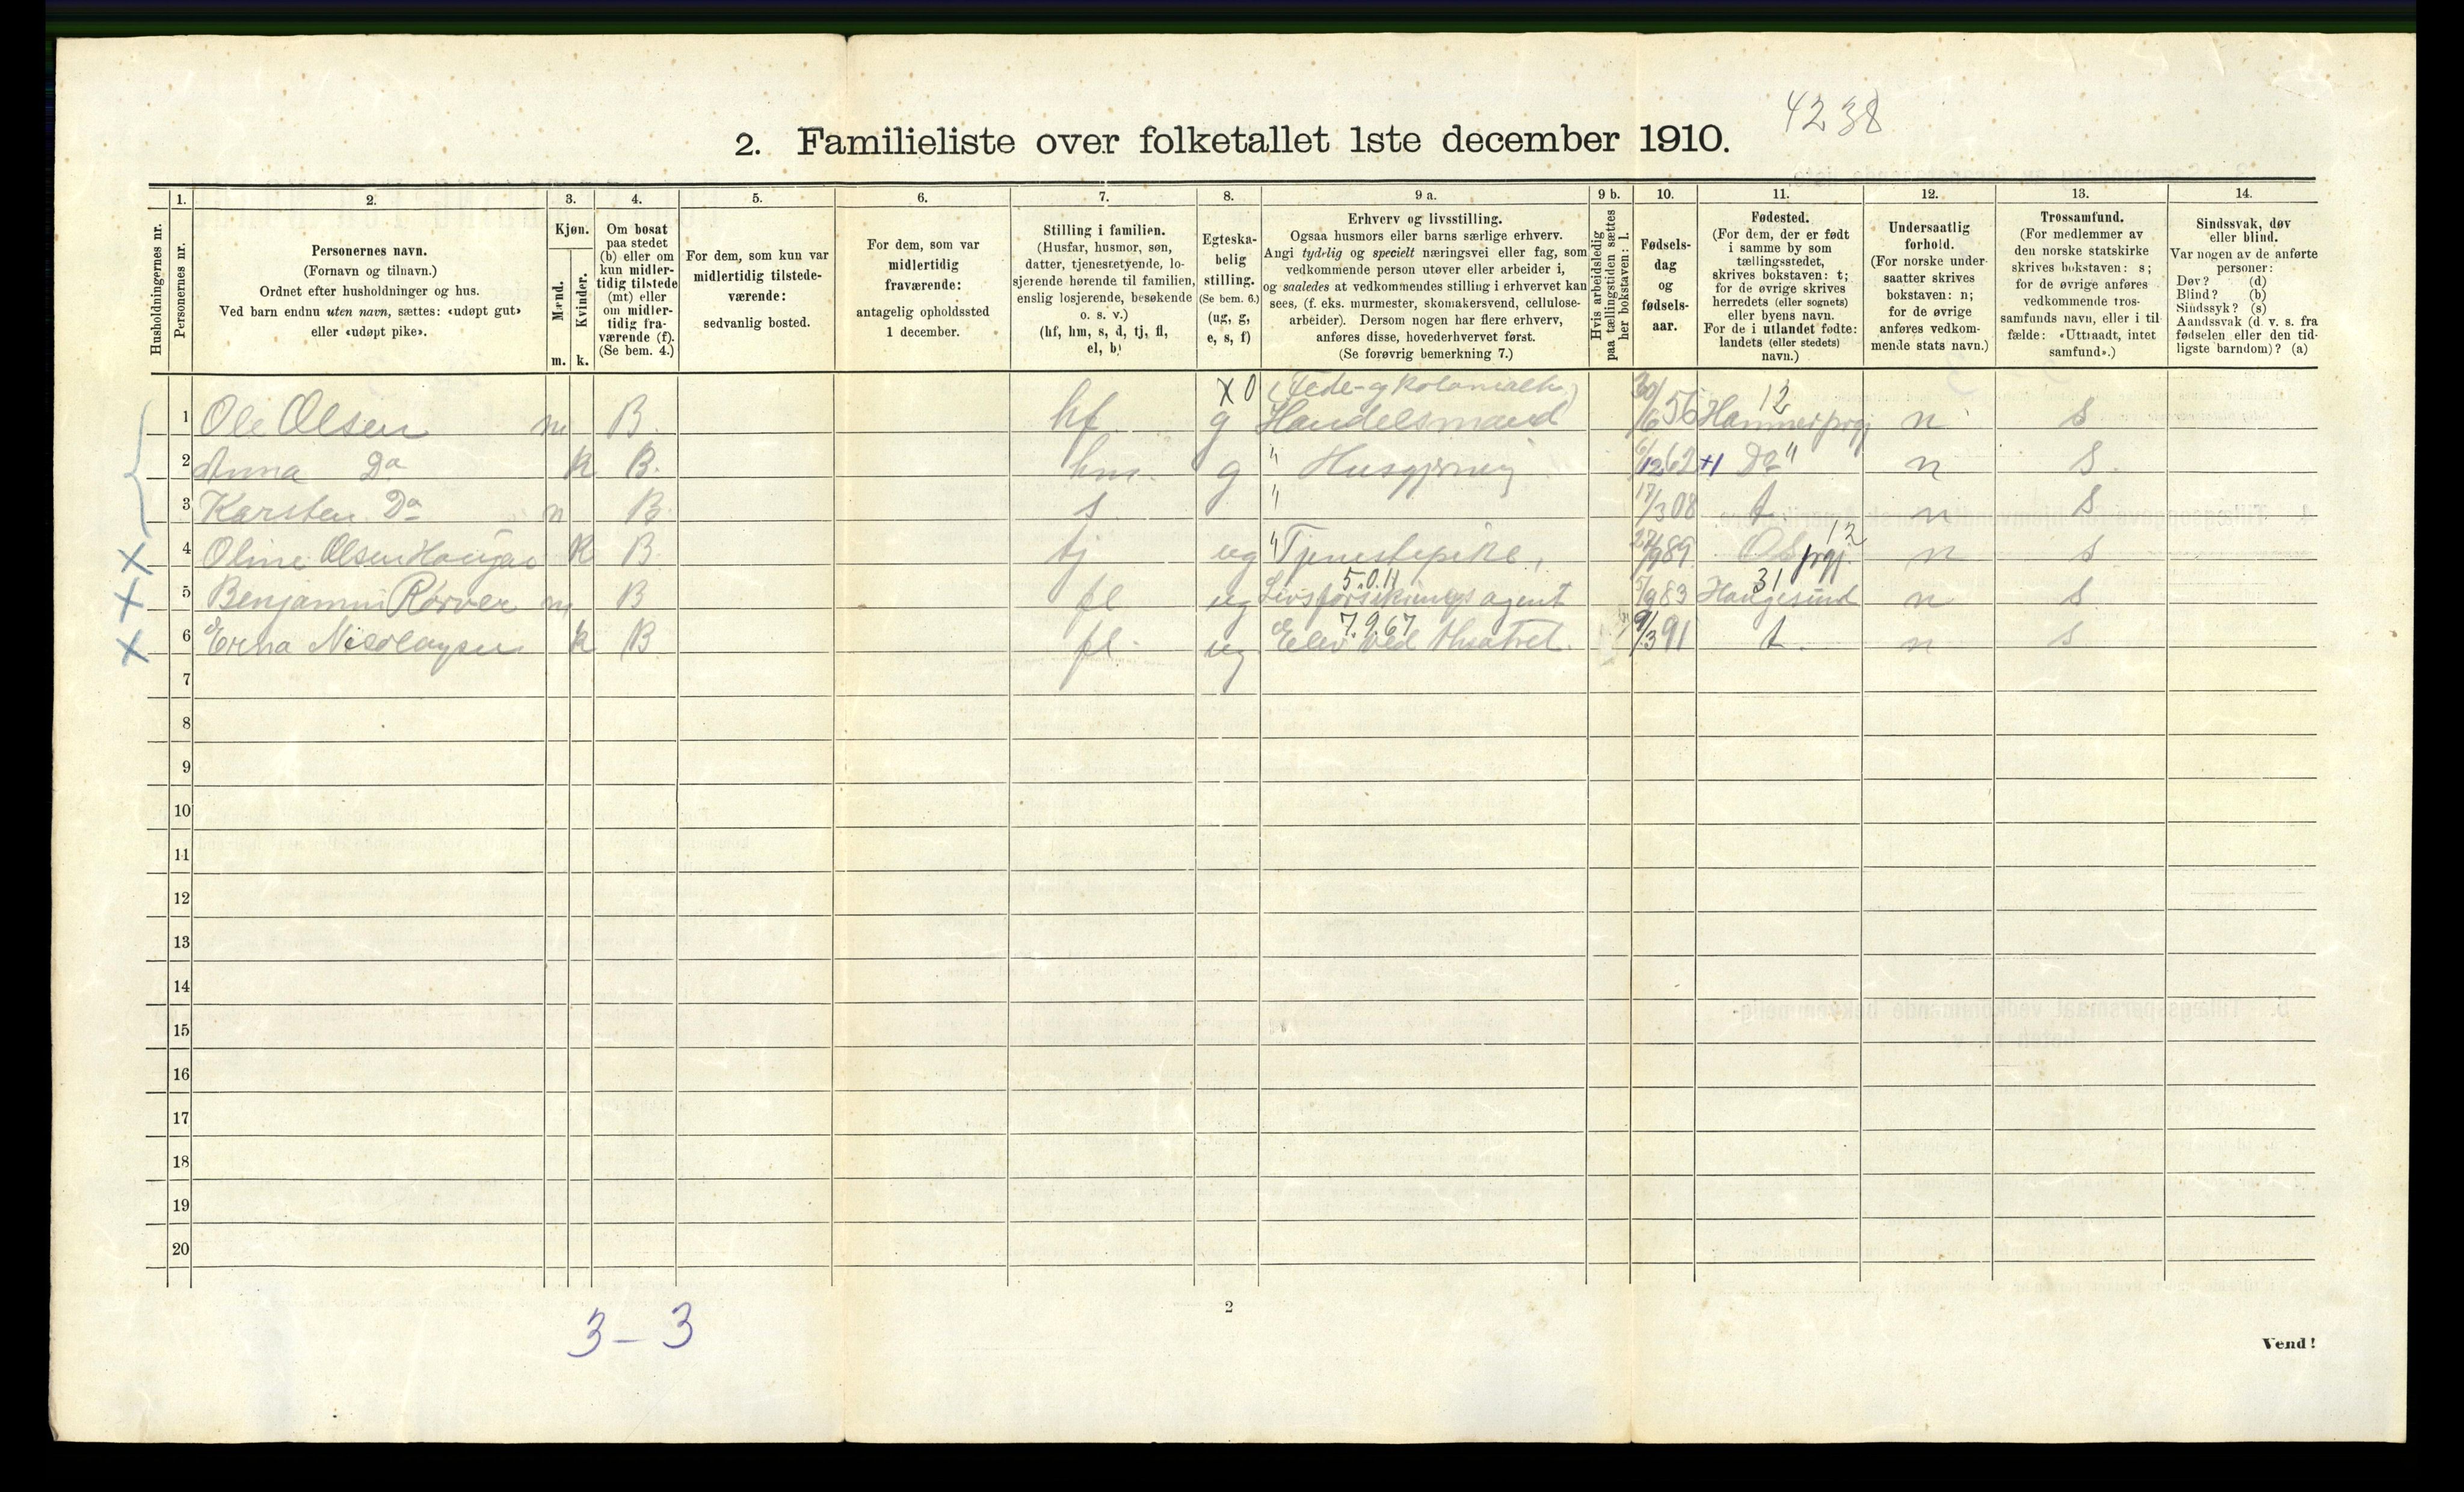 4238
2. Familieliste over folketallet 1ste december 1910.
Husholdningernes nr.
1.
Personernes nr.
2.
Personernes navn.
(Fornavn og tilnavn.)
Ordnet efter husholdninger og hus.
Ved barn endnu uten navn, sættes: «udøpt gut»
eller «udøpt pike».
3.
Kjøn.
Mænd.
Kvinder.
m. k.
4.
Om bosat
paa stedet
(b) eller om
kun midler-
tidig tilstede
(mt) eller
om midler-
tidig fra-
værende (f).
(Se bem. 4.)
5.
For dem, som kun var
midlertidig tilstede-
værende:
sedvanlig bosted.
6.
For dem, som var
midlertidig
fraværende:
antagelig opholdssted
1 december.
7.
Stilling i familien.
(Husfar, husmor, søn,
datter, tjenestetyende, lo-
sjerende hørende til familien,
enslig losjerende, besøkende
o. s. v.)
(hf, hm, s, d, tj, fl,
el, b)
8.
Egteska-
belig
stilling.
(Se bem. 6.)
(ug, g,
e, s, f)
9 a.
Erhverv og livsstilling.
Ogsaa husmors eller barns særlige erhverv.
Angi tydelig og specielt næringsvei eller fag, som
vedkommende person utøver eller arbeider i,
og saaledes at vedkommendes stilling i erhvervet kan
sees, (f. eks. murmester, skomakersvend, cellulose-
arbeider). Dersom nogen har flere erhverv,
anføres disse, hovederhvervet først.
(Se forøvrig bemerkning 7.)
9 b.
Hvis arbeidsledig
paa tællingstiden sættes
her bokstaven: l.
10.
Fødsels-
dag
og
fødsels-
aar.
11.
Fødested.
(For dem, der er født
i samme by som
tællingsstedet,
skrives bokstaven: t;
for de øvrige skrives
herredets (eller sognets)
eller byens navn.
For de i utlandet fødte:
landets (eller stedets)
navn.)
12.
Undersaatlig
forhold.
(For norske under-
saatter skrives
bokstaven: n;
for de øvrige
anføres vedkom-
mende stats navn.)
13.
Trossamfund.
(For medlemmer av
den norske statskirke
skrives bokstaven: s;
for de øvrige anføres
vedkommende tros-
samfunds navn, eller i til-
fælde: «Uttraadt, intet
samfund».)
14.
Sindssvak, døv
eller blind.
Var nogen av de anførte
personer:
Døv? (d)
Blind? (b)
Sindssyk? (s)
Aandssvak (d. v. s. fra
fødselen eller den tid-
ligste barndom)? (a)
X 0 12
1 Ole Olsen m B. hf. g Handelsmand 30/6 56 Hammer prgj n s
2 Anna Do k B. hm. g " Husgjerning 6/12 62 +1 Do " n s.
3 Karsten Do m B. s " 17/3 08 t. n s
12
4 Oline Olsen k B. tj ug " Tjenestepike, 27/9 89 prgj. n s
5.0.11 31
5 Benjamin Rørver m B fl ug Livsforsikrings agent 5/9 83 Haugesund n s
7.9.67
6 Erna Nicolaysen k B fl. ug Elev ved theatret. 9/3 91 t. n s
7
8
9
10
11
12
13
14
15
16
17
18
19
20
3 – 3
2
Vend!